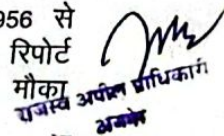 956 से
रिपोर्ट
मौका
राजस्व अपील प्राधिकारी